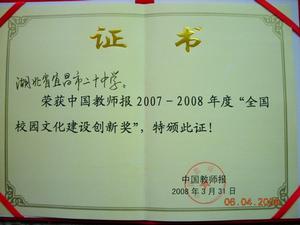 证书
湖北省宜昌市二十中学。
荣获中国教师报2007-2008年度“全国
校园文化建设创新奖”，特颁此证！
中国教师报
2008年3月31日